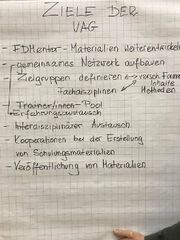 ZIELE DER
VAG
- FDMentor-Materialien weiterentwickeln
- gemeinsames Netzwerk aufbauen
- Zielgruppen definieren ↔ versch. Formate
Fachdisziplinen Inhalte
Methoden
- Trainer/innen-Pool
Erfahrungsaustausch
- Interdisziplinärer Austausch
- Kooperationen bei der Erstellung
von Schulungsmaterialien
- Veröffentlichung von Materialien